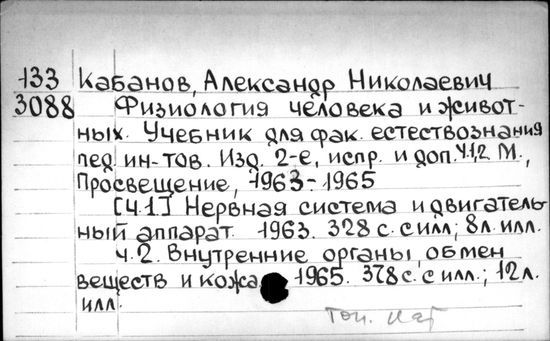 133 Кабанов, Александр Николаевич
3088 Физиология человека и живот-
ных. Учебник для фак. естествознания
пед. ин-тов. Изд. 2-е, испр. и доп. Ч.1,2. М.,
Просвещение, 1963-1965
[Ч.1] Нервная система и двигатель-
ный аппарат 1963. 328 с. с илл; 8л. илл.
ч.2. Внутренние органы, обмен
веществ и кожа 1965. 378с. с илл.; 12л.
илл.
Топ. кат